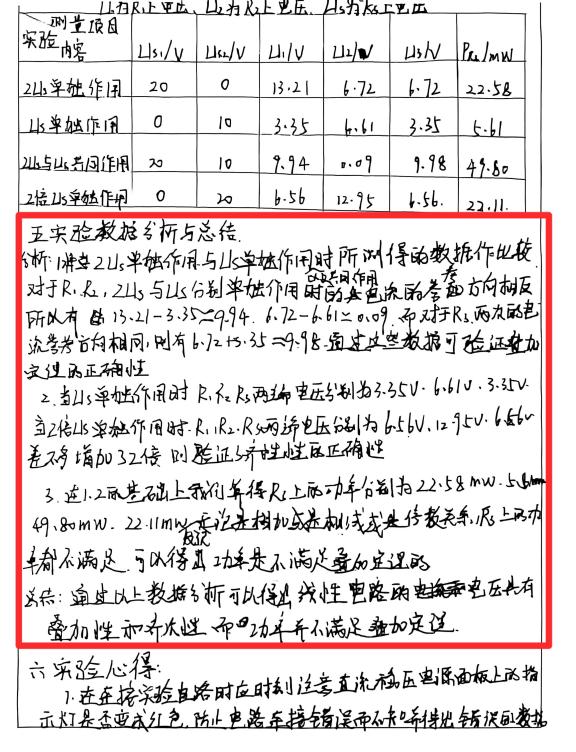 U₁为R₁上电压、U₂为R₂上电压、U₃为R₃上电压
测量项目
实验内容 Us₁/V Us₂/V U₁/V U₂/V U₃/V P_R₃/mW
2Us单独作用 20 0 13.21 6.72 6.72 22.58
Us单独作用 0 10 3.35 6.61 3.35 5.61
2Us与Us共同作用 20 10 9.94 0.09 9.98 49.80
2倍Us单独作用 0 20 6.56 12.95 6.56. 22.11
五实验数据分析与总结.
分析:1.讲2Us单独作用与Us单独作用时所测得的数据作比较
对于R₁.R₂,2Us与Us分别单独作用时的电流的参考方向相反
所以有 13.21-3.35≈9.94. 6.72-6.61≈0.09. 而对于R₃两次的电
流参考方向相同,则有6.72+3.35≈9.98.通过这些数据可验证叠加
定理的正确性
2.当Us单独作用时 R₁R₂R₃两端电压分别为3.35V.6.61V.3.35V.
当2倍Us单独作用时.R₁.R₂.R₃两端电压分别为6.56V.12.95V.6.56V
差不多增加了2倍 则验证了齐性性的正确性
3.在1.2的基础上我们算得R₃上的功率分别为22.58mW.5.61mW
49.80mW.22.11mW 无论是相加或是相减或是倍数关系,R₃上的功
率都不满足.可以得出功率是不满足叠加定理的
总结:通过以上数据分析可以得出线性电路的电压具有
叠加性和齐次性.而功率并不满足叠加定理.
六实验心得:
1.在连接实验电路时应时刻注意直流稳压电源面板上的指
示灯是否变成红色,防止电路连接错误而不知并得出错误的数据